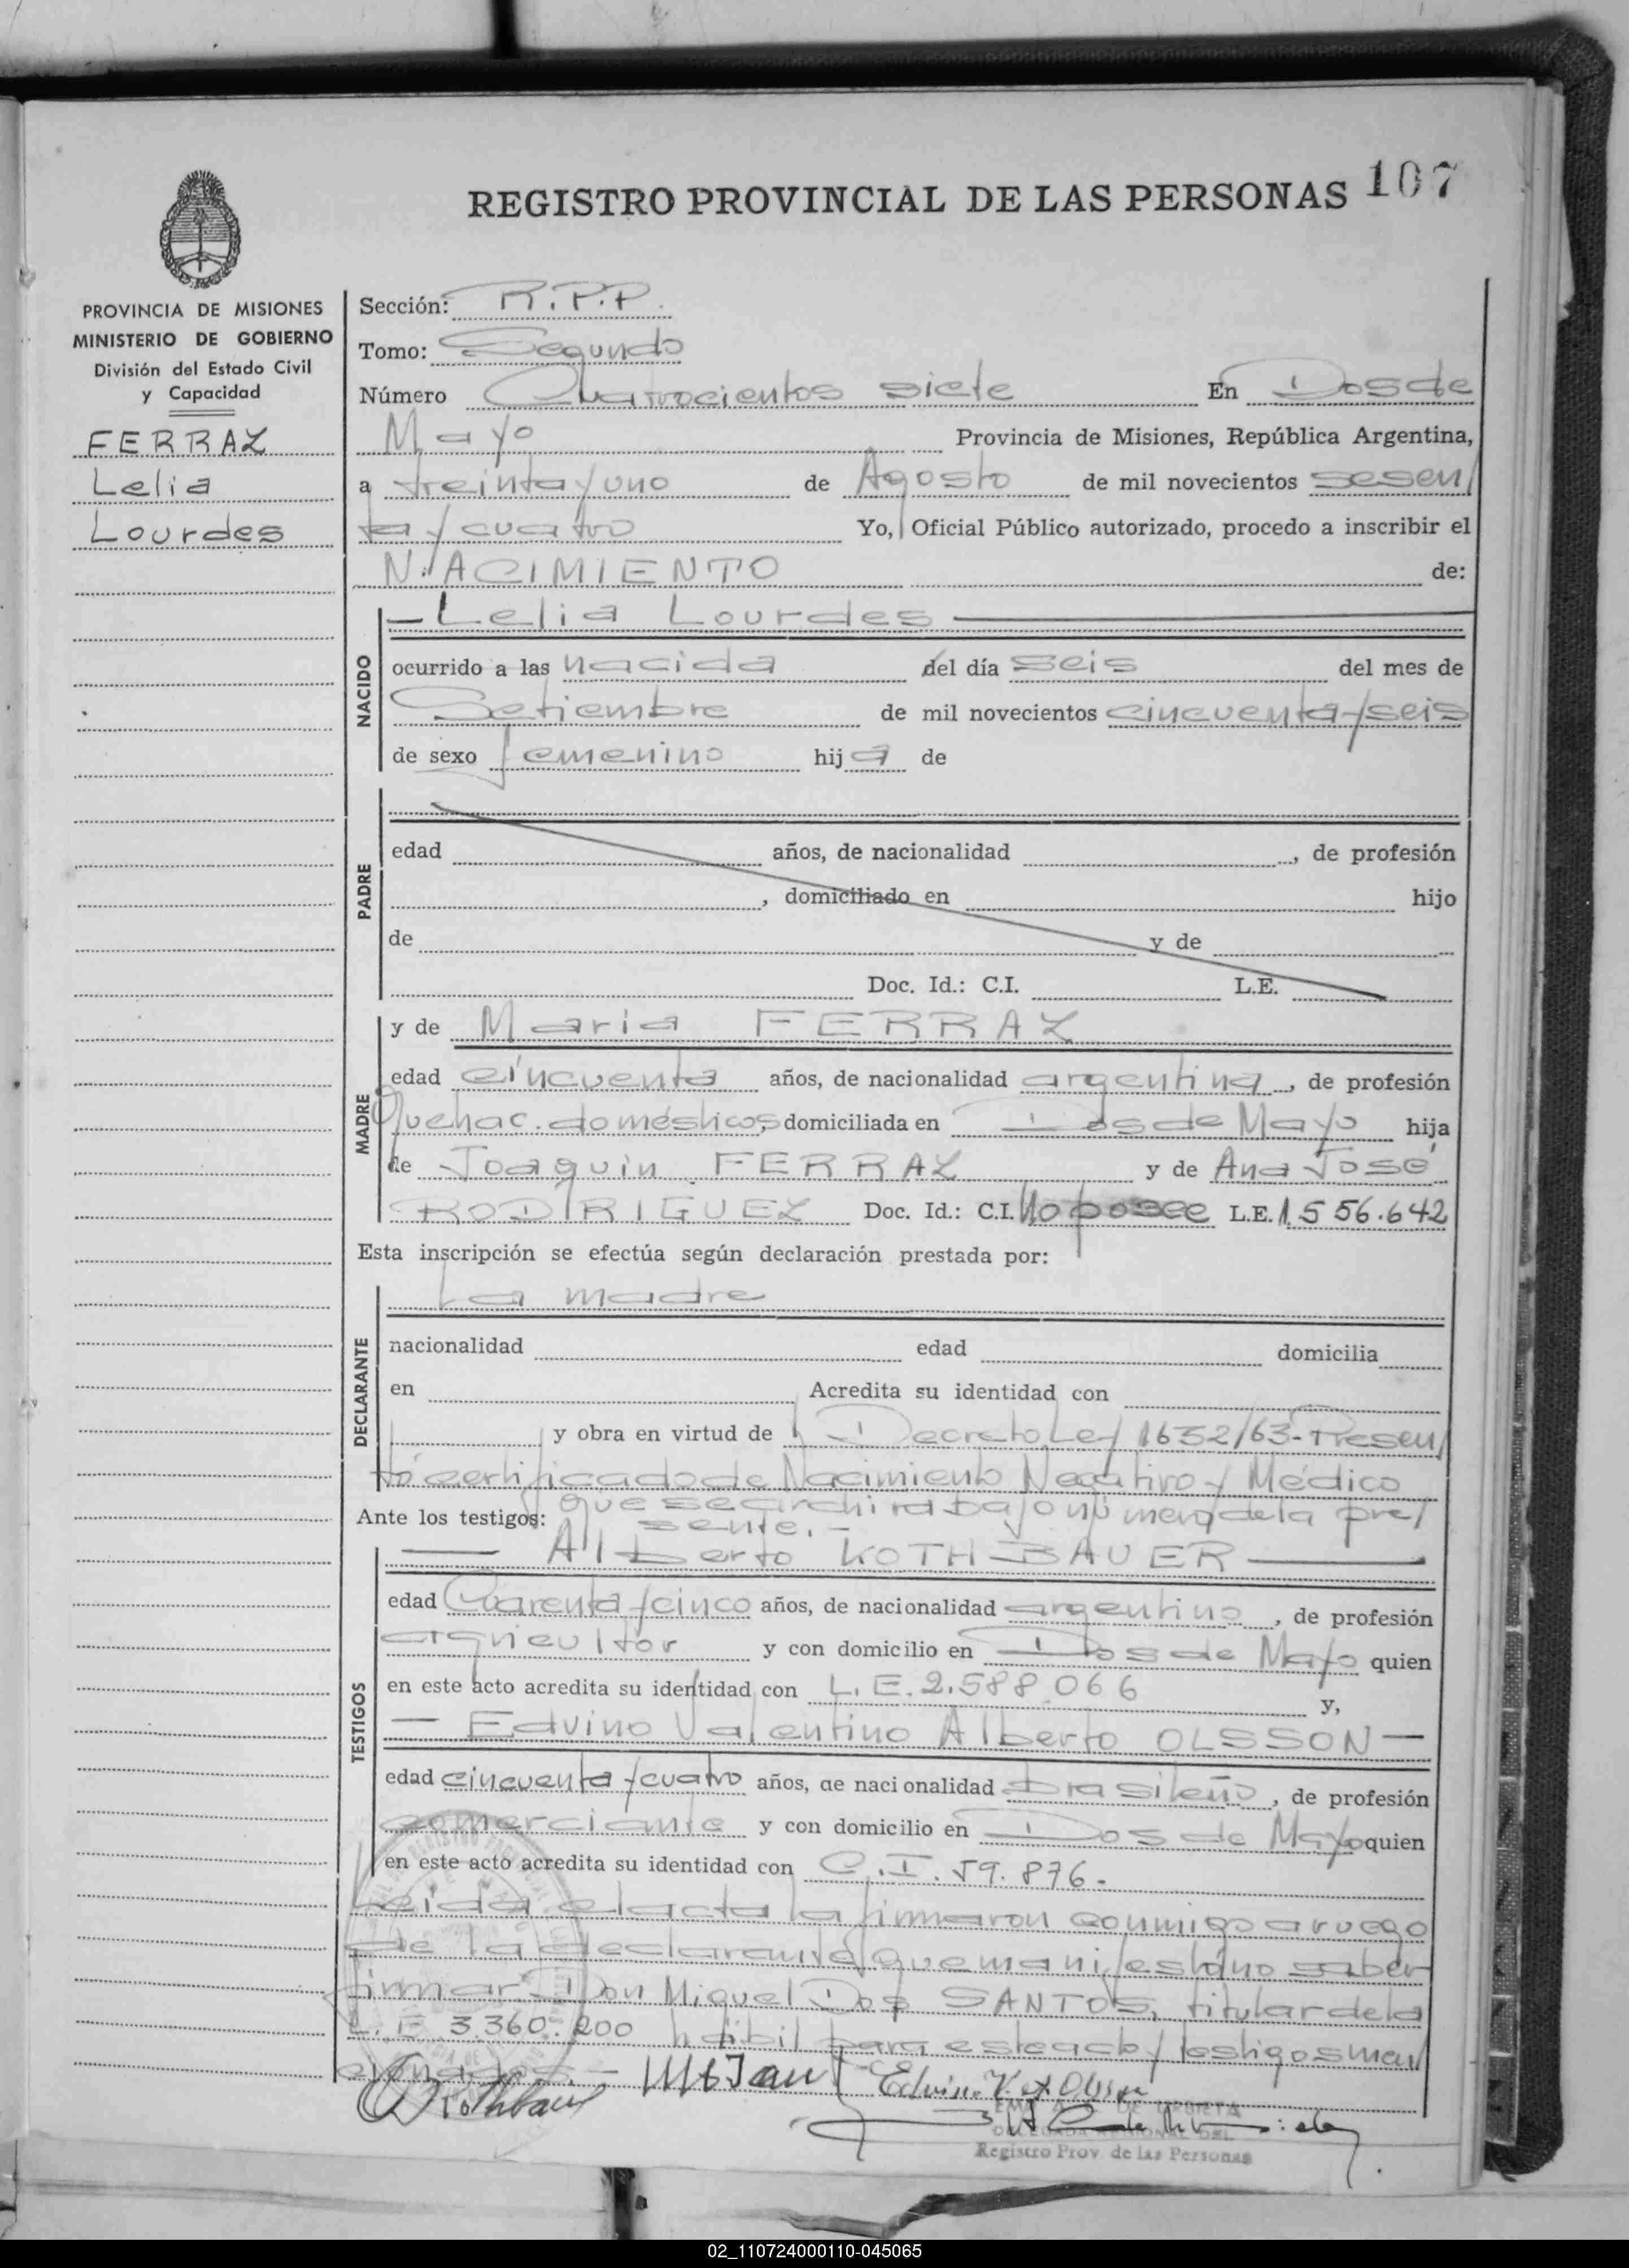 REGISTRO PROVINCIAL DE LAS PERSONAS 107
PROVINCIA DE MISIONES
MINISTERIO DE GOBIERNO
División del Estado Civil
y Capacidad
FERRAZ
Lelia
Lourdes
Sección: R.P.P.
Tomo: Segundo
Número Cuatrocientos siete En Dos de
Mayo Provincia de Misiones, República Argentina,
a treinta y uno de Agosto de mil novecientos sesen/
ta y cuatro Yo, Oficial Público autorizado, procedo a inscribir el
NACIMIENTO de:
NACIDO
— Lelia Lourdes —
ocurrido a las nacida del día seis del mes de
Setiembre de mil novecientos cincuenta y seis
de sexo femenino hija de
PADRE
edad años, de nacionalidad , de profesión
, domiciliado en hijo
de y de
Doc. Id.: C.I. L.E.
MADRE
y de Maria FERRAZ
edad cincuenta años, de nacionalidad argentina, de profesión
Quehac. domésticos, domiciliada en Dos de Mayo hija
de Joaquin FERRAZ y de Ana José
RODRIGUEZ Doc. Id.: C.I. No posee L.E. 1.556.642
Esta inscripción se efectúa según declaración prestada por:
DECLARANTE
La madre
nacionalidad edad domicilia
en Acredita su identidad con
y obra en virtud de Decreto Ley 1652/63- Presen/
tó certificado de Nacimiento Negativo y Médico
que se archiva bajo número de la pre/
Ante los testigos: sente.-
TESTIGOS
— Alberto ROTHBAUER —
edad Cuarenta y cinco años, de nacionalidad argentino, de profesión
agricultor y con domicilio en Dos de Mayo quien
en este acto acredita su identidad con L.E. 2.588.066 y,
— Edvino Valentino Alberto OLSSON —
edad cincuenta y cuatro años, de nacionalidad brasileño, de profesión
comerciante y con domicilio en Dos de Mayo quien
en este acto acredita su identidad con C.I. 59.876.-
Leida el acta la firmaron conmigo a ruego
de la declarante que manifestó no saber
firmar Don Miguel Dos SANTOS, titular de la
L.E 3.360.200 hábil para este acto y testigos men/
cionados.-
Registro Prov. de las Personas
02_110724000110-045065